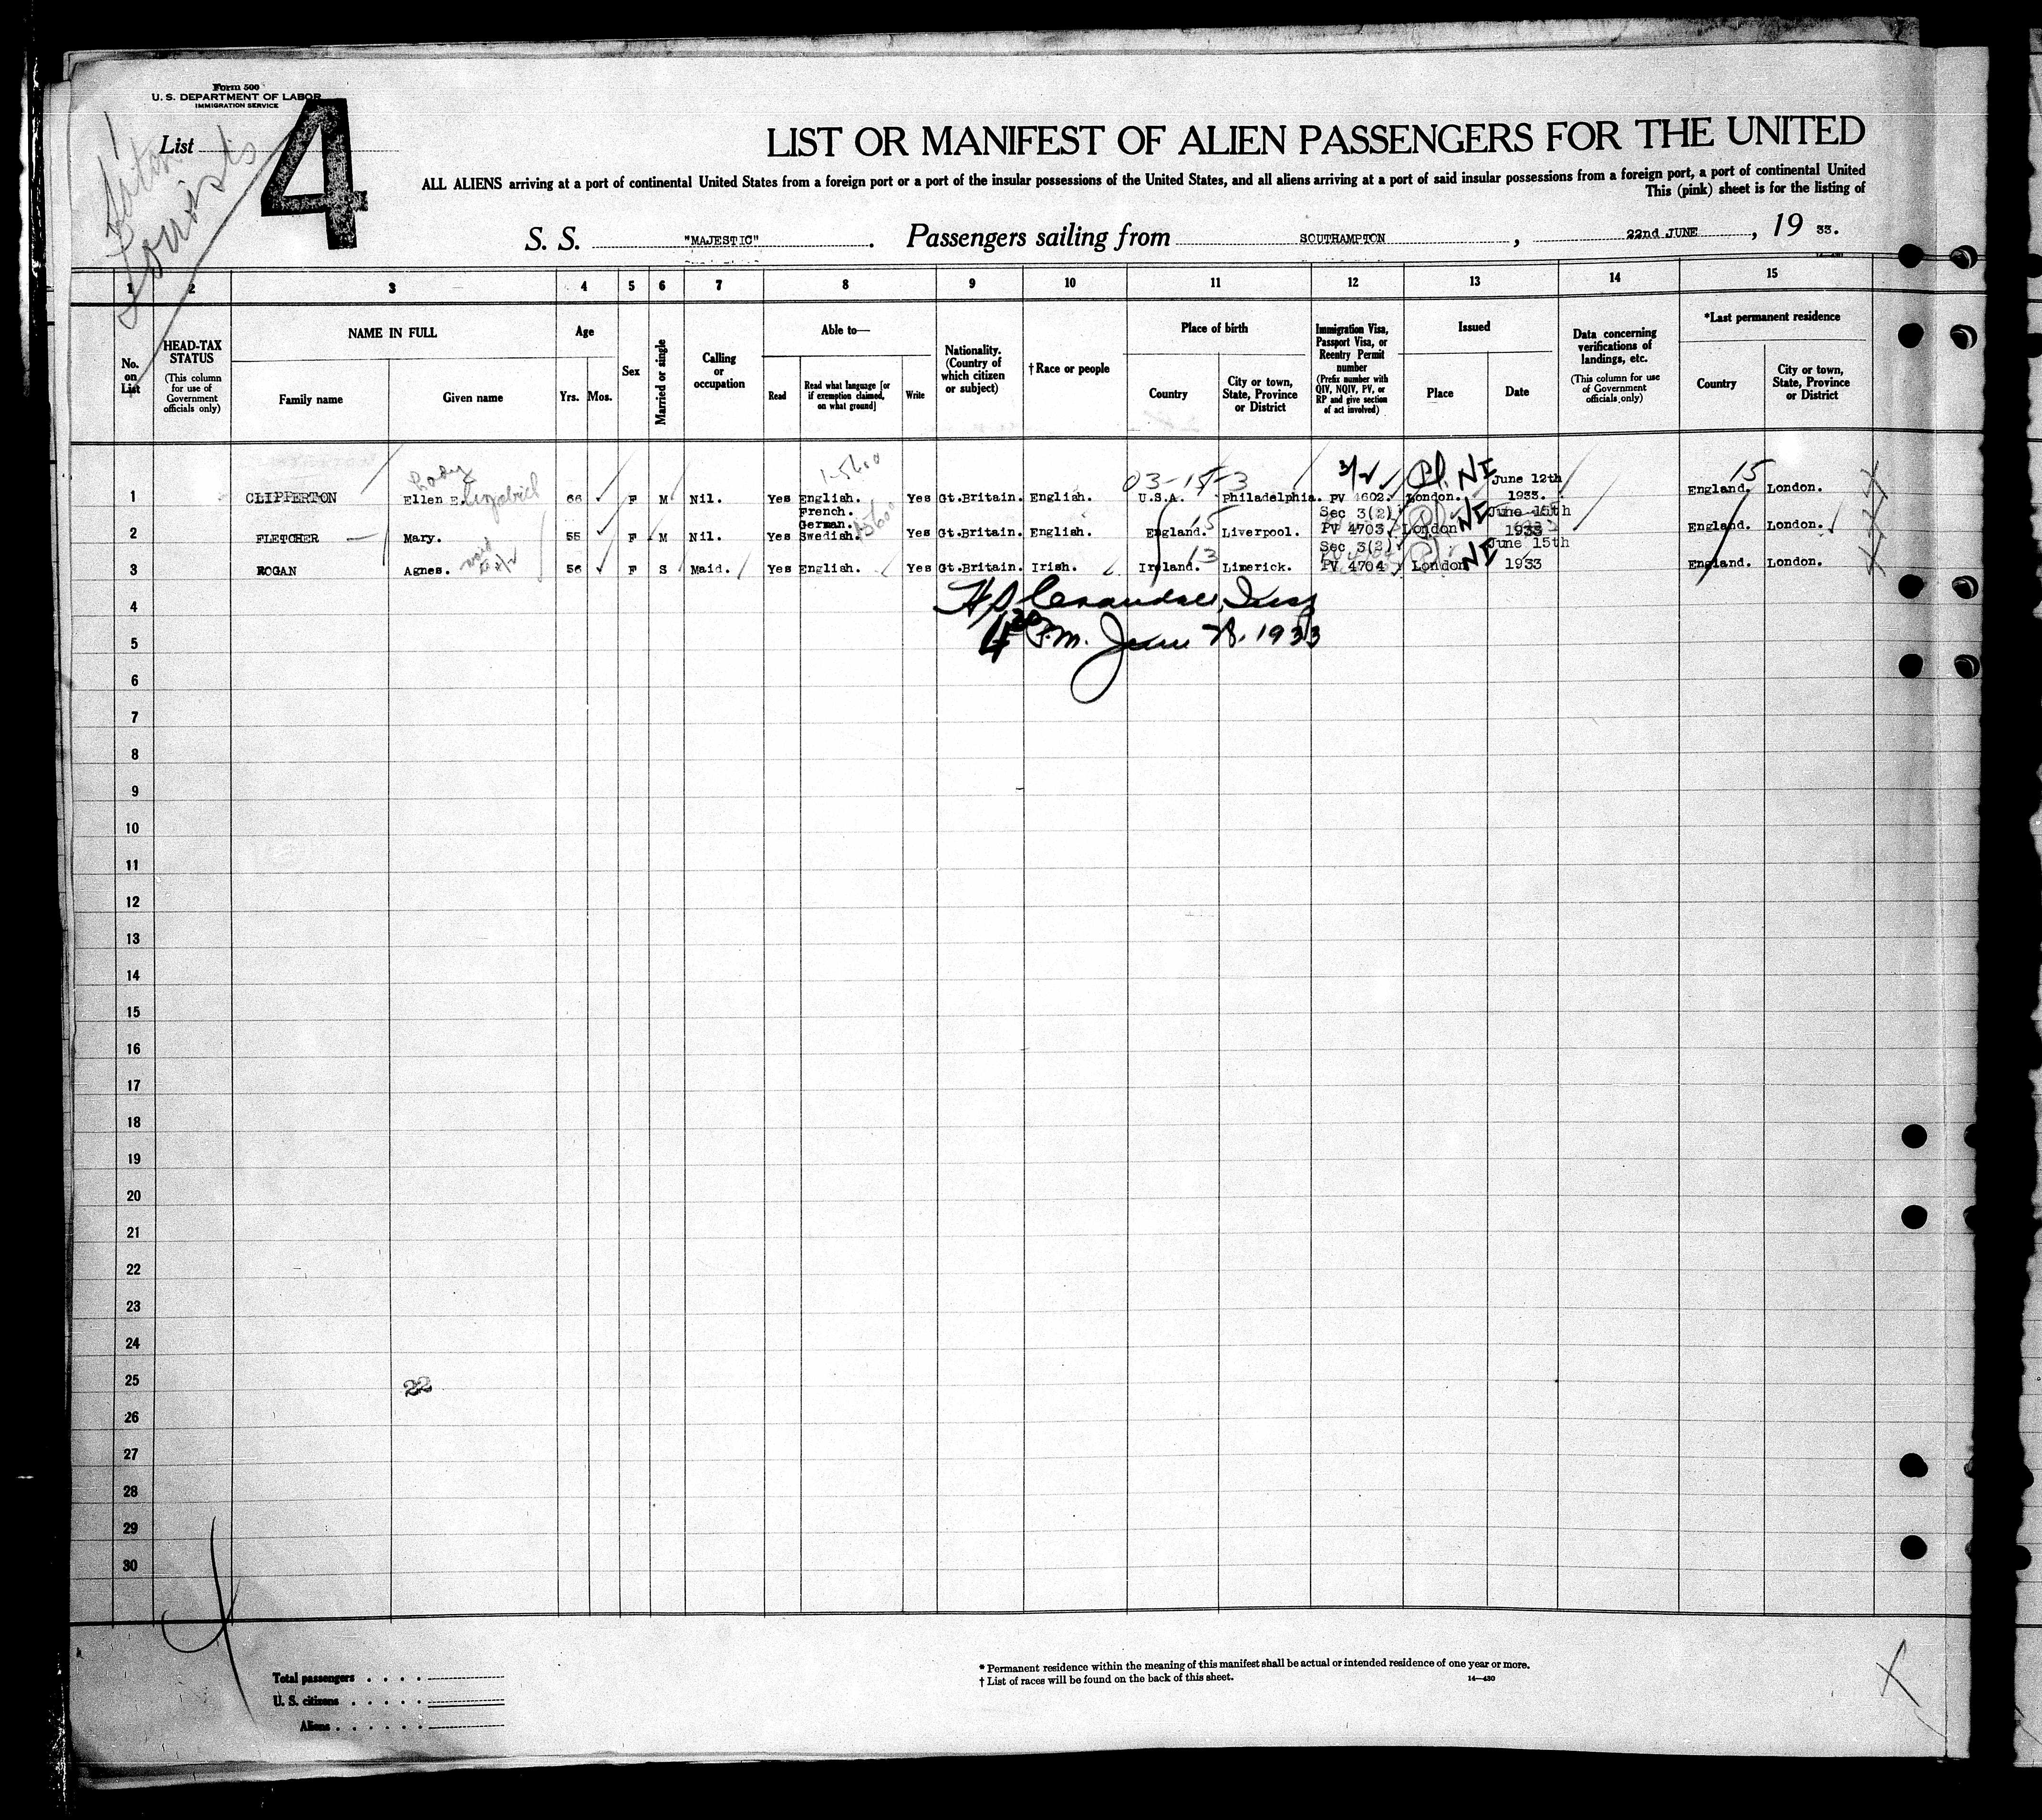 Form 500
U. S. DEPARTMENT OF LABOR
IMMIGRATION SERVICE
List
4
Tourists
LIST OR MANIFEST OF ALIEN PASSENGERS FOR THE UNITED
ALL ALIENS arriving at a port of continental United States from a foreign port or a port of the insular possessions of the United States, and all aliens arriving at a port of said insular possessions from a foreign port, a port of continental United
This (pink) sheet is for the listing of
S. S. "MAJESTIC". Passengers sailing from SOUTHAMPTON, 22nd JUNE, 19 33.
1 2 3 4 5 6 7 8 9 10 11 12 13 14 15
No. on List
HEAD-TAX STATUS
(This column for use of Government officials only)
NAME IN FULL
Family name
Given name
Age
Yrs. Mos.
Sex
Married or single
Calling or occupation
Able to—
Read
Read what language [or if exemption claimed, on what ground]
Write
Nationality. (Country of which citizen or subject)
† Race or people
Place of birth
Country
City or town, State, Province or District
Immigration Visa, Passport Visa, or Reentry Permit number
(Prefix number with QIV, NQIV, PV, or RP and give section of act involved)
Issued
Place
Date
Data concerning verifications of landings, etc.
(This column for use of Government officials only)
*Last permanent residence
Country
City or town, State, Province or District
Lady
03-15-3
15
NI June 12th
1 CLIPPERTON Ellen E. 66 F M Nil. Yes English. Yes Gt.Britain. English. U.S.A. Philadelphia. PV 4602. London. 1933. England. London.
French. Sec 3(2) June 15th
German. 15 NI
2 FLETCHER Mary. 55 F M Nil. Yes Swedish. Yes Gt.Britain. English. England. Liverpool. PV 4703 London 1933 England. London.
maid 13 Sec 3(2) June 15th
3 ROGAN Agnes. 56 F S Maid. Yes English. Yes Gt.Britain. Irish. Ireland. Limerick. PV 4704 London NI 1933 England. London.
4
Insp
5
4 30 P.M. June 28. 1933
6
7
8
9
10
11
12
13
14
15
16
17
18
19
20
21
22
23
24
25
22
26
27
28
29
30
Total passengers . . . .
U. S. citizens . . . . .
Aliens . . . . . .
* Permanent residence within the meaning of this manifest shall be actual or intended residence of one year or more.
† List of races will be found on the back of this sheet. 14—430
X